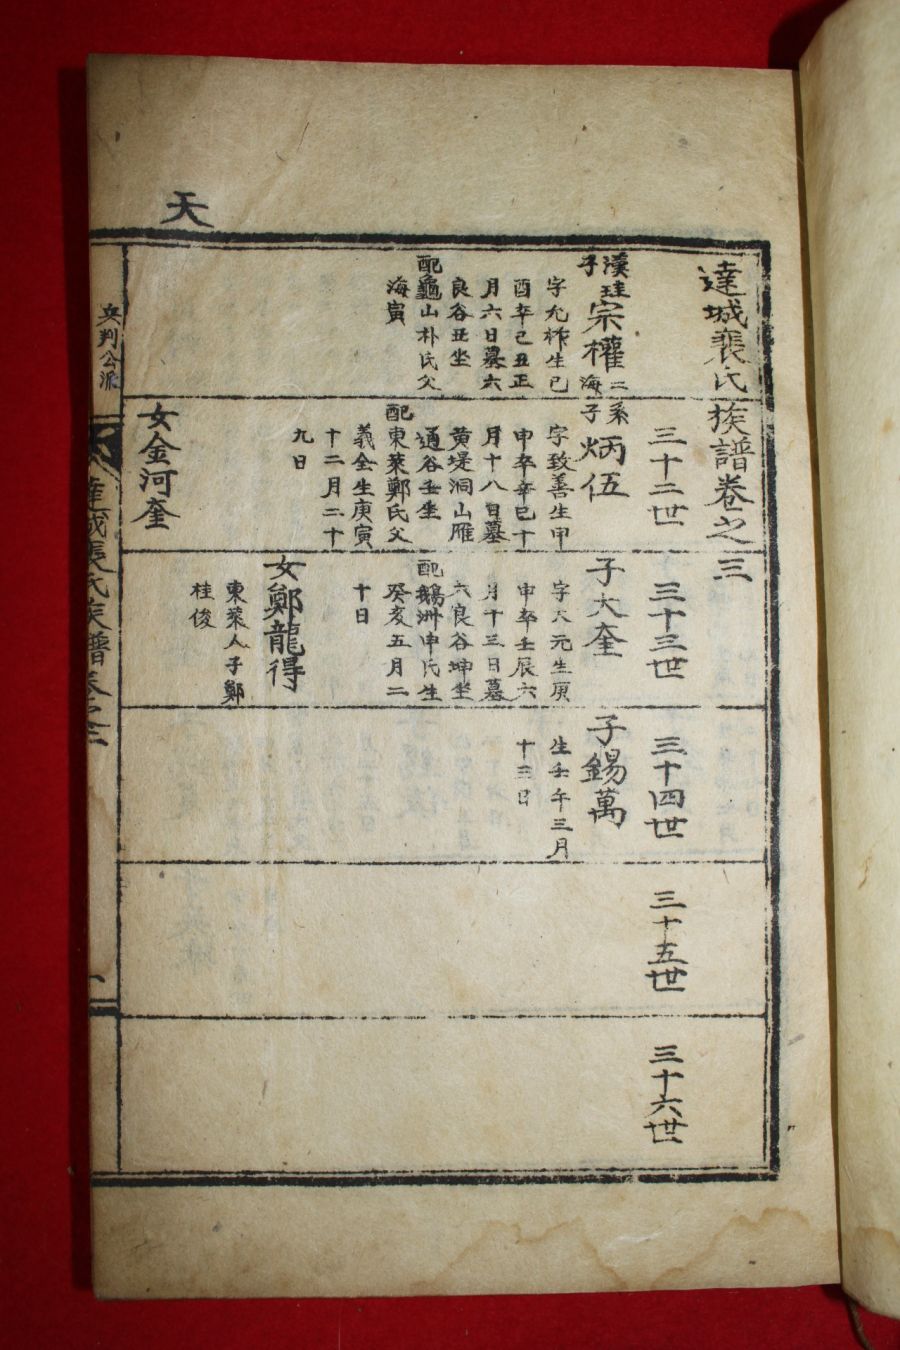 天
達城裴氏族譜卷之三
三十二世
三十三世
三十四世
三十五世
三十六世
漢珪
子
宗權
字允祚生己
酉卒己丑正
月六日墓六
良谷丑坐
配龜山朴氏父
海寅
二海
系子
炳伍
字致善生甲
申卒辛巳十
月十八日墓
黄堤洞山雁
通谷壬坐
配東萊鄭氏父
義全生庚寅
十二月二十
九日
女金河奎
子大奎
字大元生庚
申卒壬辰六
月十三日墓
六良谷坤坐
配鵝洲申氏生
癸亥五月二
十日
女鄭龍得
東萊人子鄭
桂俊
子錫萬
生壬午三月
十三日
兵判公派
達城裴氏族譜卷之三
一